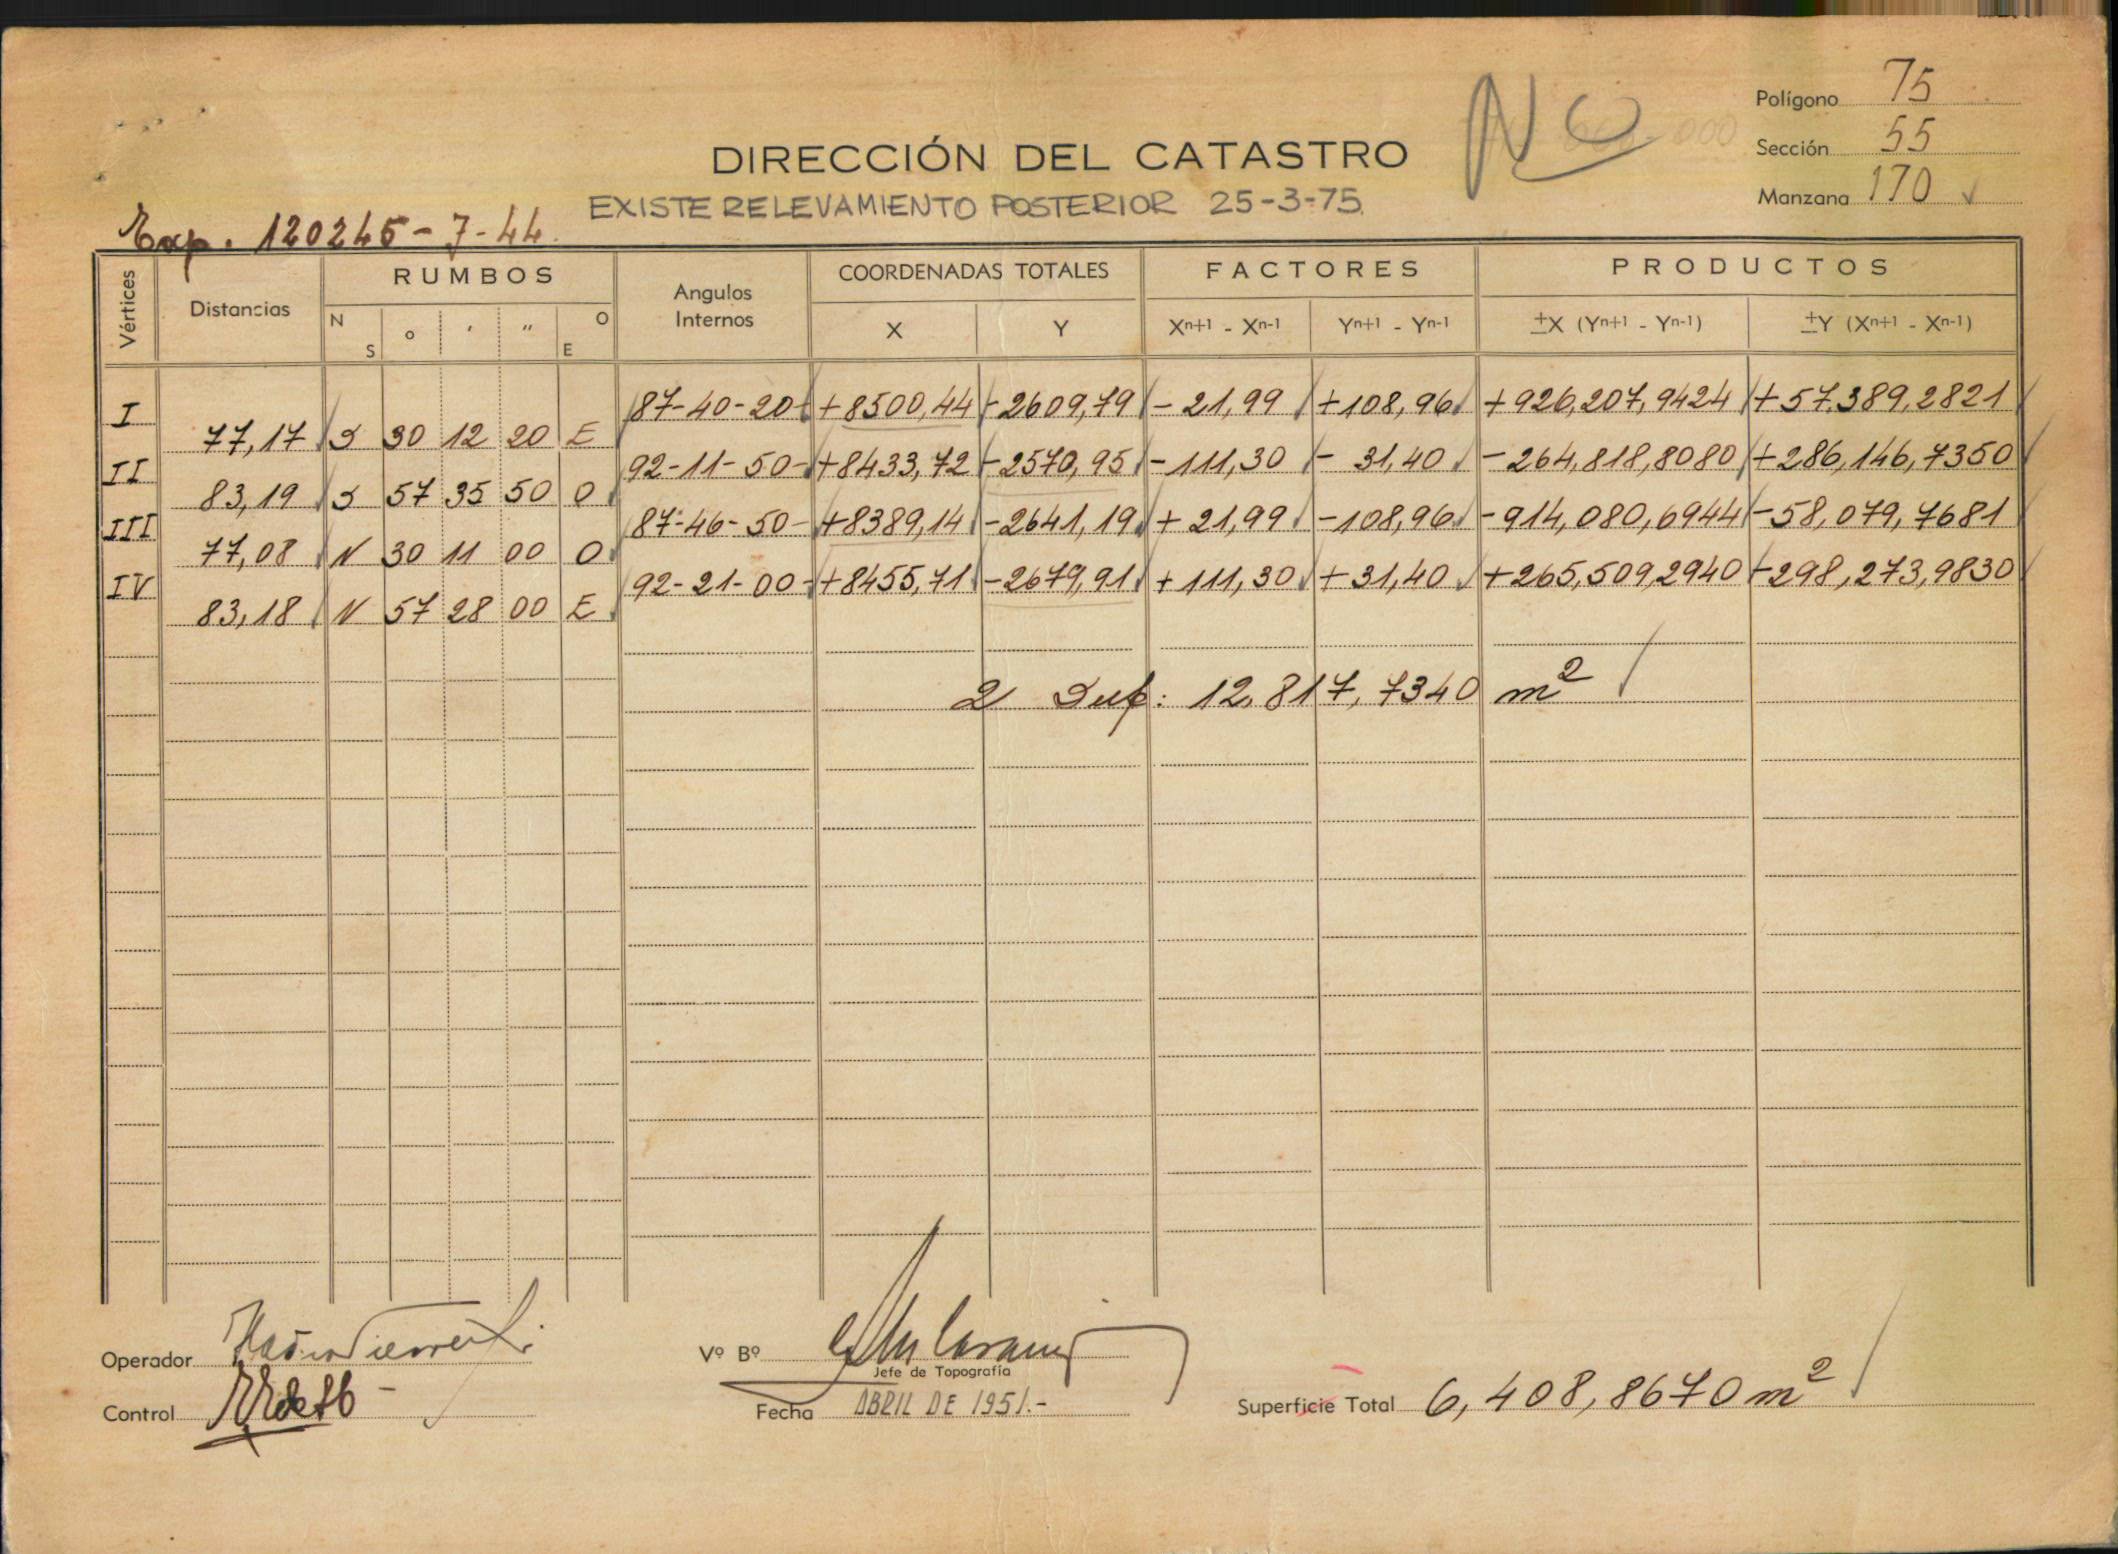 Polígono 75
DIRECCIÓN DEL CATASTRO
NO
Sección 55
EXISTE RELEVAMIENTO POSTERIOR 25-3-75.
Manzana 170 ✓
Exp. 120245-7-44.
Vértices Distancias RUMBOS Angulos Internos COORDENADAS TOTALES FACTORES PRODUCTOS
N S ° ' " O E X Y Xn+1 - Xn-1 Yn+1 - Yn-1 ±X (Yn+1 - Yn-1) ±Y (Xn+1 - Xn-1)
I 87-40-20 +8500,44 -2609,79 -21,99 +108,96 +926,207,9424 +57.389,2821
77,17 S 30 12 20 E
II 92-11-50- +8433,72 -2570,95 -111,30 -31,40 -264,818,8080 +286,146,7350
83,19 S 57 35 50 O
III 87-46-50- +8389,14 -2641,19 +21,99 -108,96 -914,080,6944 -58,079,7681
77,08 N 30 11 00 O
IV 92-21-00- +8455,71 -2679,91 +111,30 +31,40 +265,509,2940 -298,273,9830
83,18 N 57 28 00 E
2 Sup: 12.817,7340 m²
Operador
Vº Bº
Jefe de Topografía
Control
Fecha ABRIL DE 1951.-
Superficie Total 6,408,8670 m²